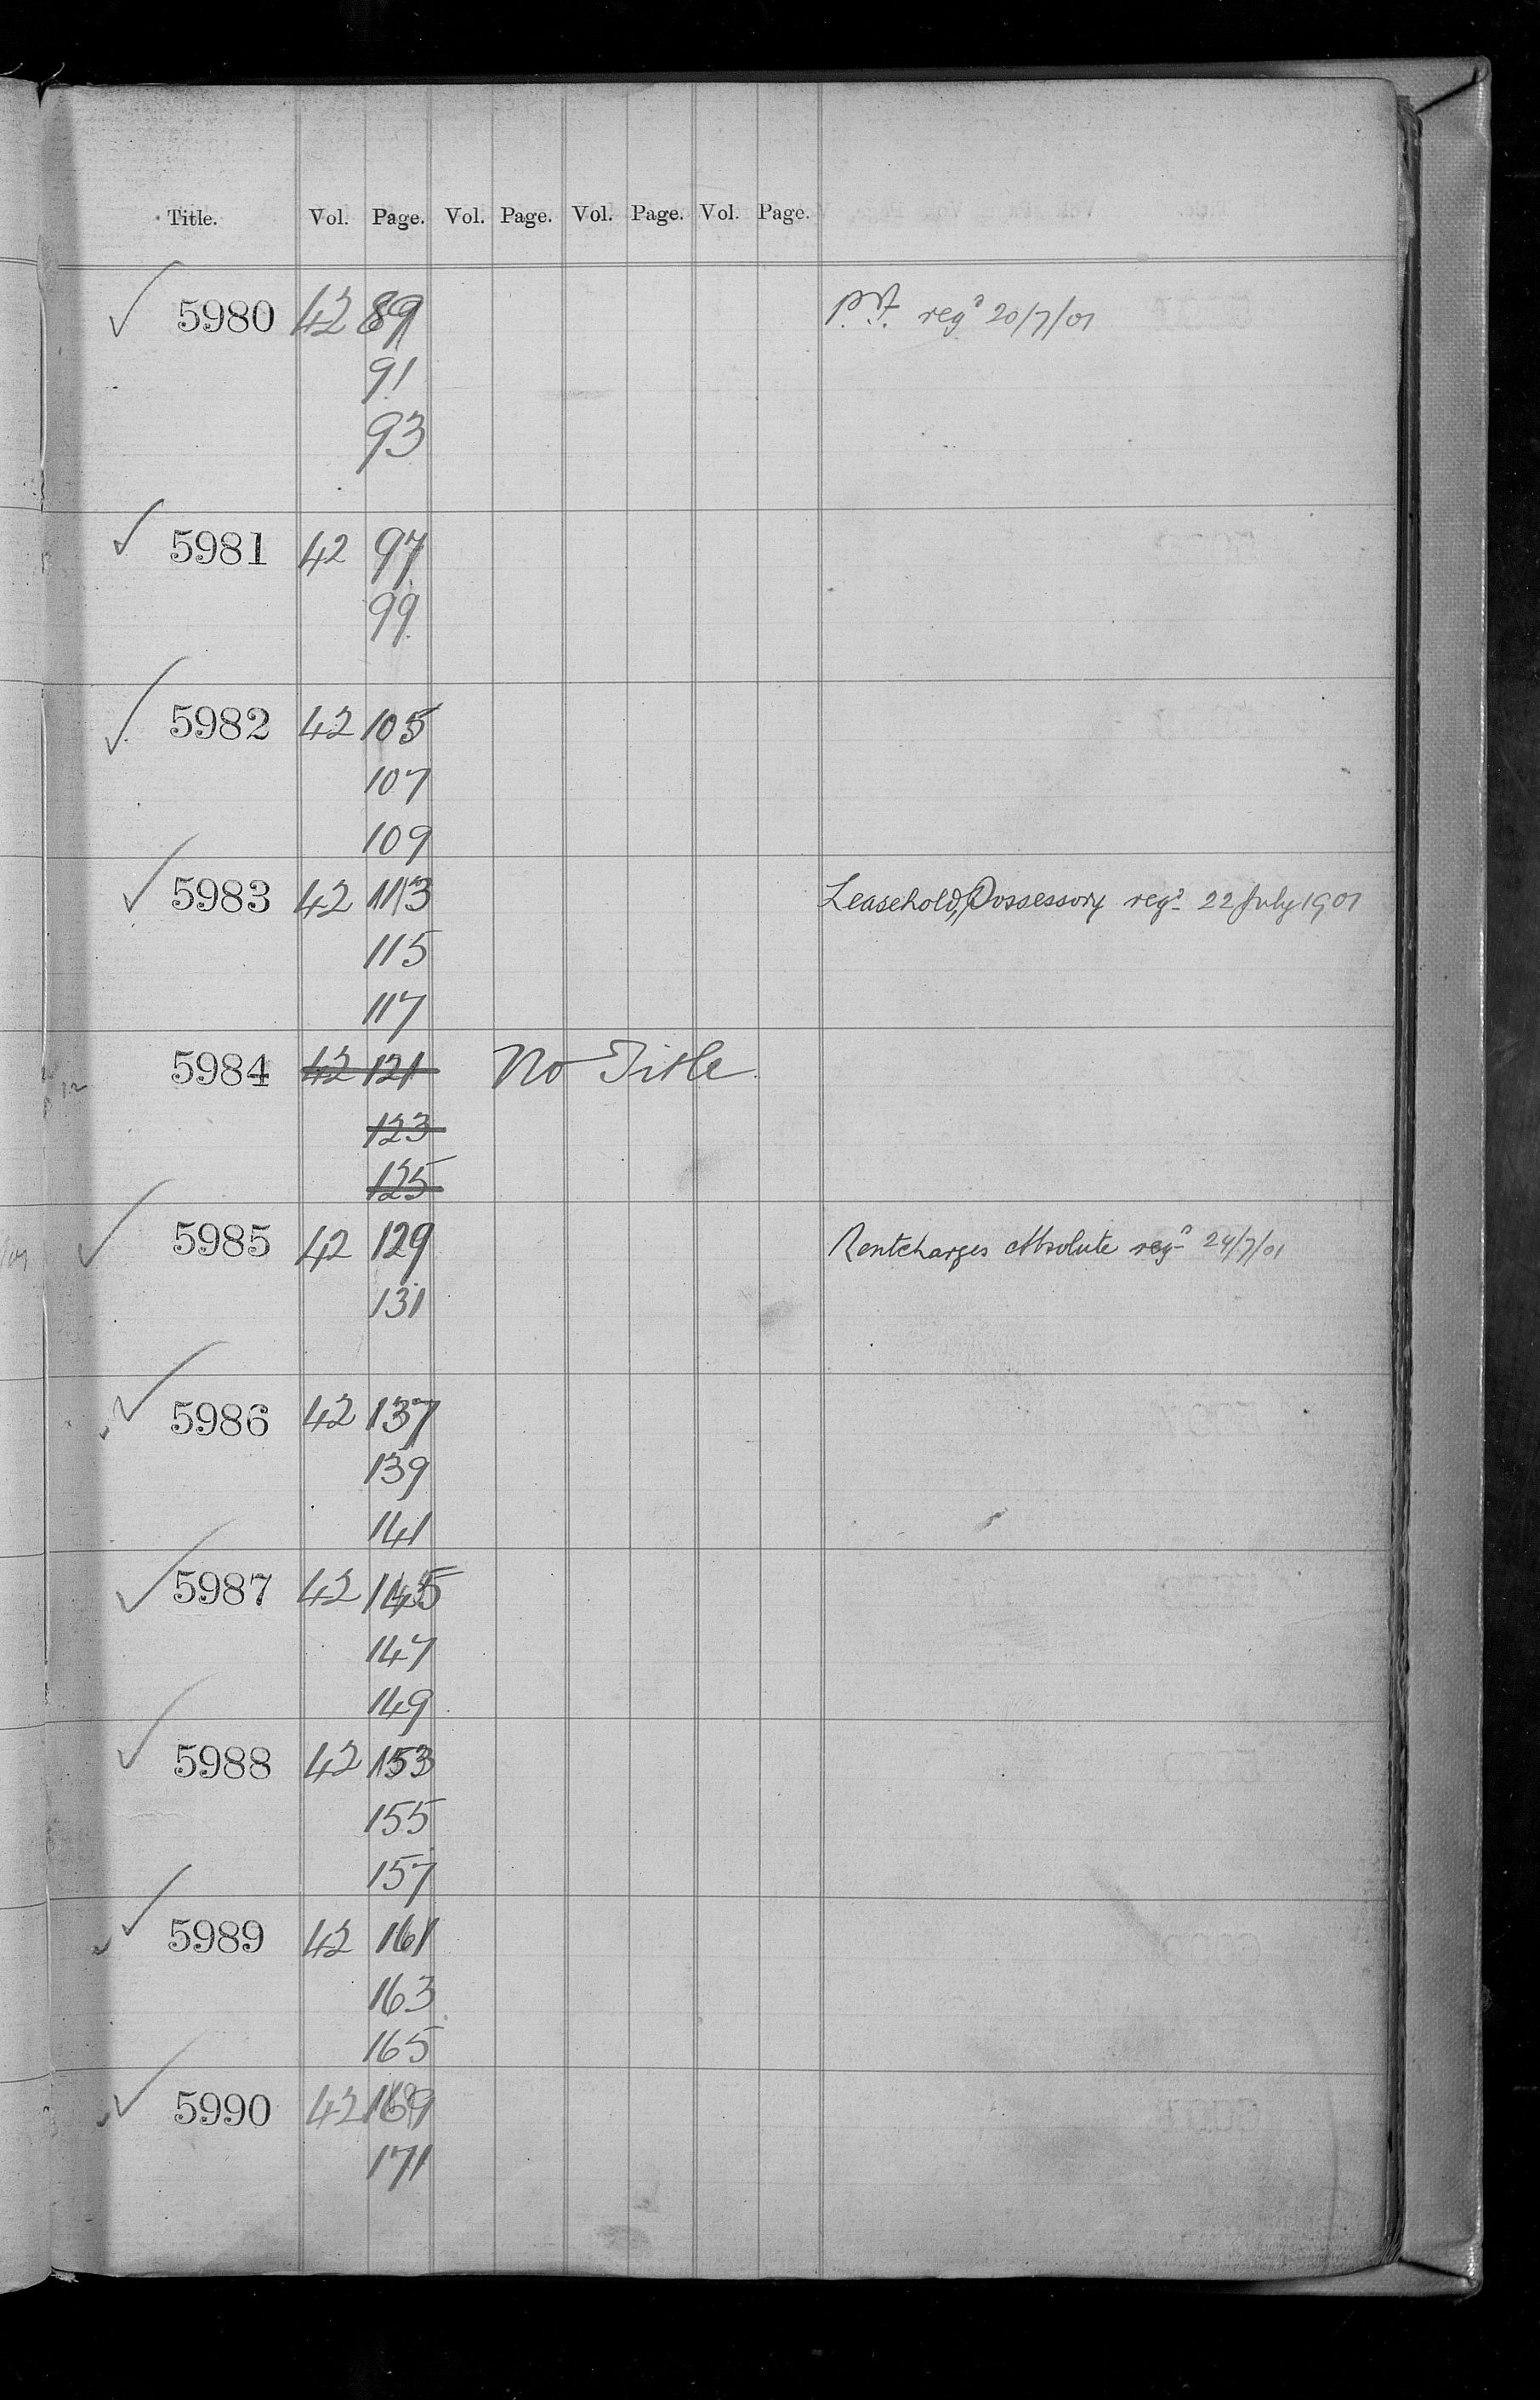 Title. Vol. Page. Vol. Page. Vol. Page. Vol. Page.
5980 42 89 regd 20/7/01
91
93
5981 42 97
99
5982 42 105
107
109
5983 42 113 Leasehold, Possessory regd 22 July 1901
115
117
5984 42 121 No Title
123
125
5985 42 129 Rentcharges Absolute regd 24/7/01
131
5986 42 137
139
141
5987 42 145
147
149
5988 42 153
155
157
5989 42 161
163
165
5990 42 169
171